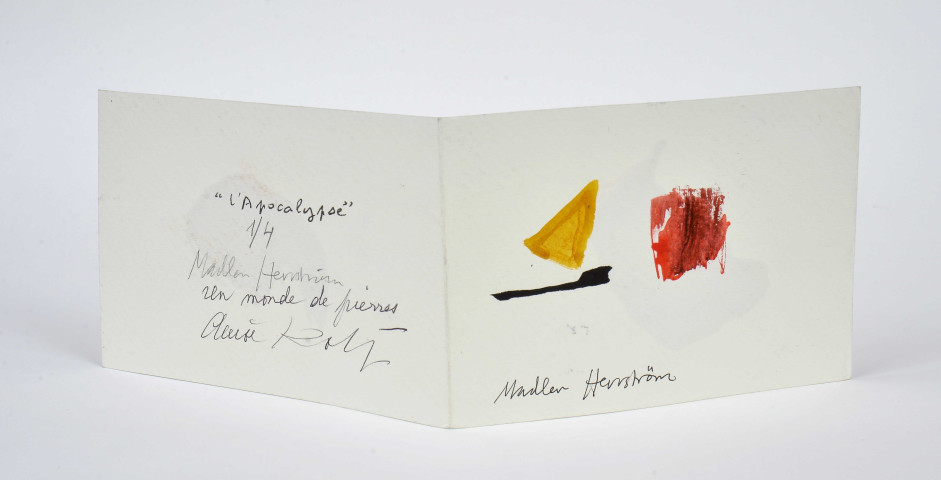 "L'Apocalypse"
1/4
Madlen Herrström
un monde de pierres
Anise Koltz
Madlen Herrström